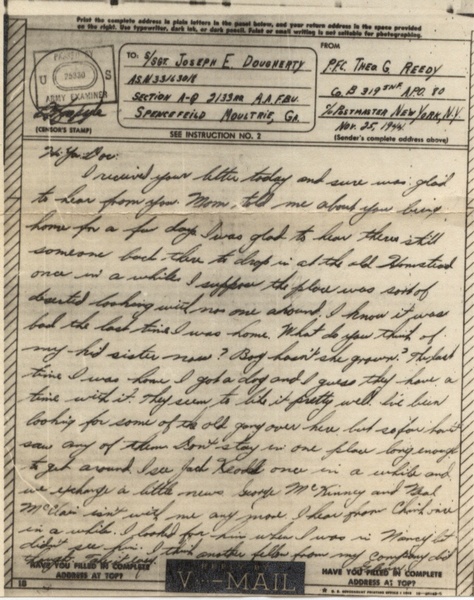 Print the complete address in plain letters in the panel below, and your return address in the space provided
on the right. Use typewriter, dark ink, or dark pencil. Faint or small writing is not suitable for photographing.
TO:
S/SGT JOSEPH E. DOUGHERTY
ASN33163018
SECTION A-Q 2133RD A.A.F.B.U.
SPENCEFEILD MOULTRIE, GA.
FROM
PFC. THEO G. REEDY
CO. B 319TH INF. A.P.O. 80
% POSTMASTER NEW YORK, N.Y.
NOV. 25, 1944
(Sender's complete address above)
U S
25330
ARMY EXAMINER
(CENSOR'S STAMP)
SEE INSTRUCTION NO. 2
Hi Ya Doc:
I received your letter today and sure was glad
to hear from you. Mom told me about you being
home for a few days I was glad to hear theres still
someone back there to drop in at the old Homstead
once in a while. I suppose the place was sort of
deserted looking with no one around. I know it was
bad the last time I was home. What do you think of
my kid sister now? Boy hasn't she grown? The last
time I was home I got a dog and I guess they have a
time with it. They seem to like it pretty well. I've been
looking for some of the old gang over here but so far havn't
saw any of them Don't stay in one place long enough
to get around. I see Jack once in a while and
we exchange a little news George McKinney and Neal
isn't with me any more. I hear from once
in a while. I looked for him when I was in Nancy but
didn't see him. I think another fellow from my company did
HAVE YOU FILLED IN COMPLETE
ADDRESS AT TOP?
V-MAIL
HAVE YOU FILLED IN COMPLETE
ADDRESS AT TOP?